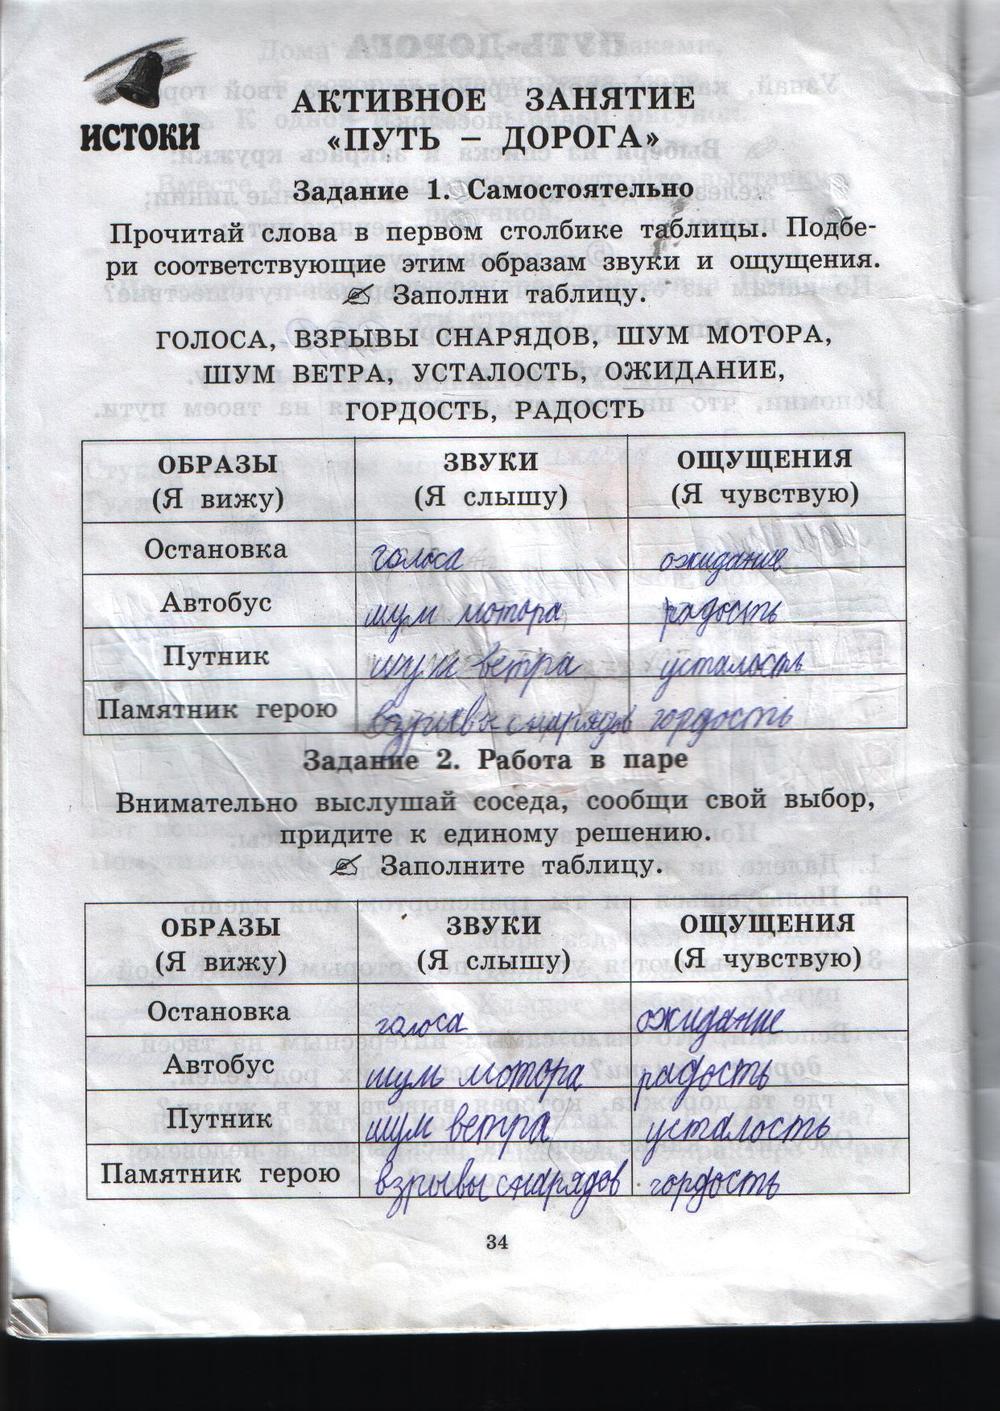 ИСТОКИ
АКТИВНОЕ ЗАНЯТИЕ
«ПУТЬ – ДОРОГА»
Задание 1. Самостоятельно
Прочитай слова в первом столбике таблицы. Подбе-
ри соответствующие этим образам звуки и ощущения.
Заполни таблицу.
ГОЛОСА, ВЗРЫВЫ СНАРЯДОВ, ШУМ МОТОРА,
ШУМ ВЕТРА, УСТАЛОСТЬ, ОЖИДАНИЕ,
ГОРДОСТЬ, РАДОСТЬ
ОБРАЗЫ ЗВУКИ ОЩУЩЕНИЯ
(Я вижу) (Я слышу) (Я чувствую)
Остановка голоса ожидание
Автобус шум мотора радость
Путник шум ветра усталость
Памятник герою взрывы снарядов гордость
Задание 2. Работа в паре
Внимательно выслушай соседа, сообщи свой выбор,
придите к единому решению.
Заполните таблицу.
ОБРАЗЫ ЗВУКИ ОЩУЩЕНИЯ
(Я вижу) (Я слышу) (Я чувствую)
Остановка голоса ожидание
Автобус шум мотора радость
Путник шум ветра усталость
Памятник герою взрывы снарядов гордость
34